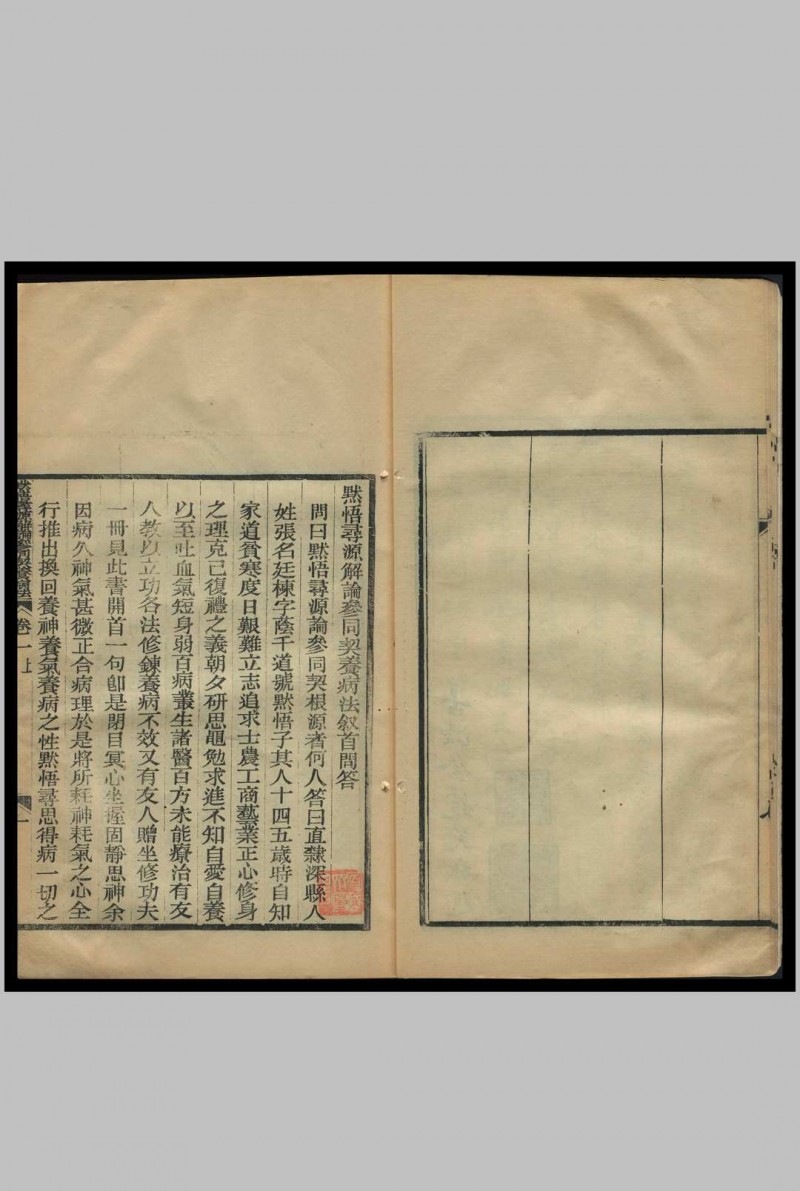 默悟尋源解論參同契養病法叙首問答
問曰默悟尋源論參同契根源者何人答曰直隸深縣人
姓張名廷棟字蔭千道號默悟子其人十四五歲時自知
家道貧寒度日艱難立志追求士農工商藝業正心修身
之理克己復禮之義朝夕研思黽勉求進不知自愛自養
以至吐血氣短身弱百病叢生諸醫百方未能療治有友
人教以立功各法修鍊養病不效又有友人贈坐修功夫
一冊見此書開首一句卽是閉目冥心坐握固靜思神余
因病久神氣甚微正合病理於是將所耗神耗氣之心全
行推出換回養神養氣養病之性默悟尋思得病一切之
卷一上
一